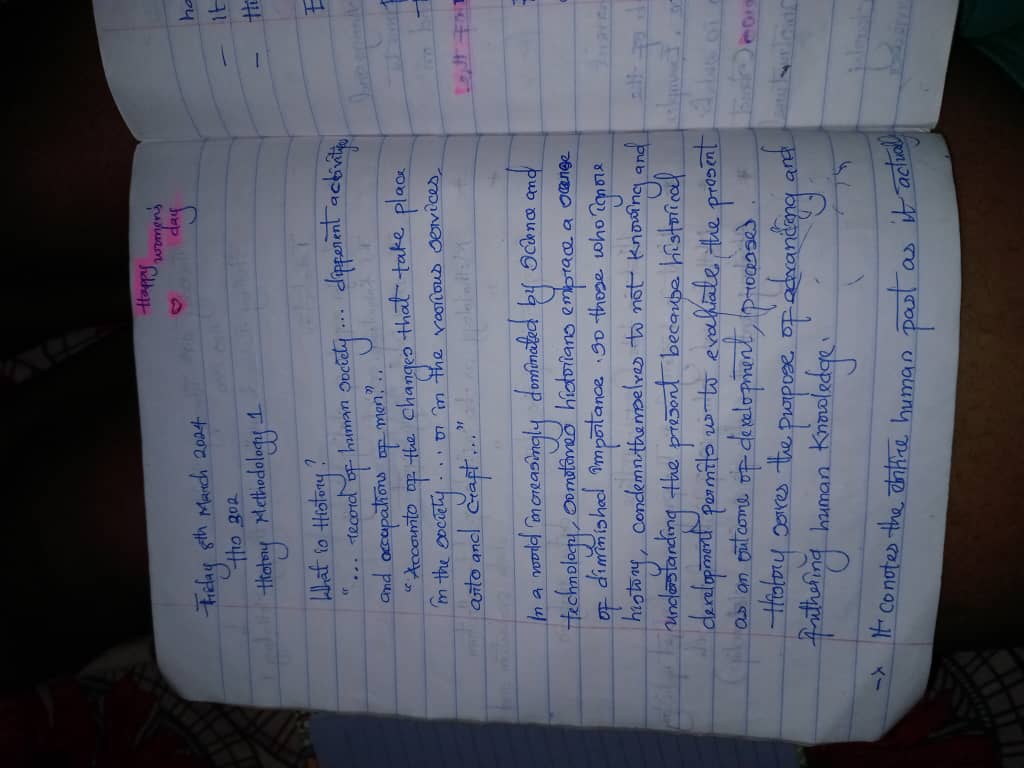 Happy
women's
day
Friday 8th March 2024
His 302
History Methodology 1
What is History?
"... record of human society ... different activities
and occupations of men"...
"Accounts of the changes that take place
in the society ... or in the various services,
arts and craft ..."
In a world increasingly dominated by science and
technology, sometimes historians embrace a sense
of diminished importance. So those who ignore
history, condemn themselves to not knowing and
understanding the present because historical
development permits us to evaluate, the present
as an outcome of development, (processes).
History serves the purpose of advancing and
furthering human knowledge.
→ It conotes the entire human past as it actually
ha
- It
- Hi